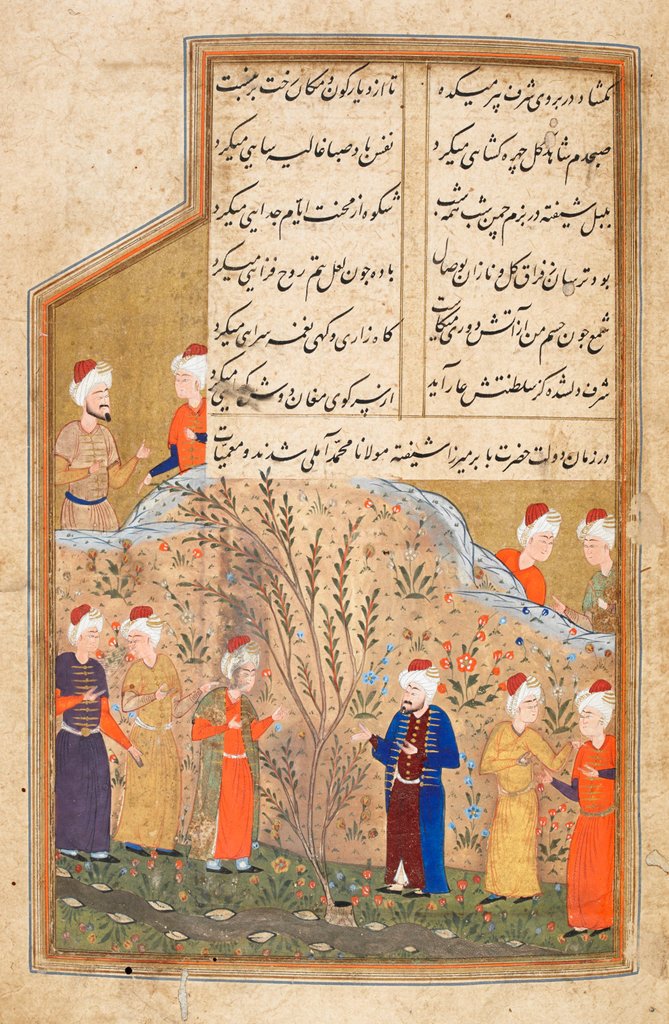 نگشاد در بروی شرف پیر میکده تا از دیار کون و مکان رخت بر نبست
صبحدم شاهد گل چهره گشایی میکرد نفس باد صبا غالیه سایی میکرد
بلبل شیفته در بزم چمن شب همه شب شکوه از محنت ایام جدایی میکرد
بود ترسان ز فراق گل و نازان بوصال باده چون لعل بتم روح فزایی میکرد
شمع چون جسم من از آتش دوری میکاست گاه زاری و گهی نغمه سرایی میکرد
شرف دلشده کز سلطنتش عار آید از سر کوی مغان دوش
در زمان دولت حضرت بابر میرزا شیفته مولانا محمد آملی شدند و معمیات